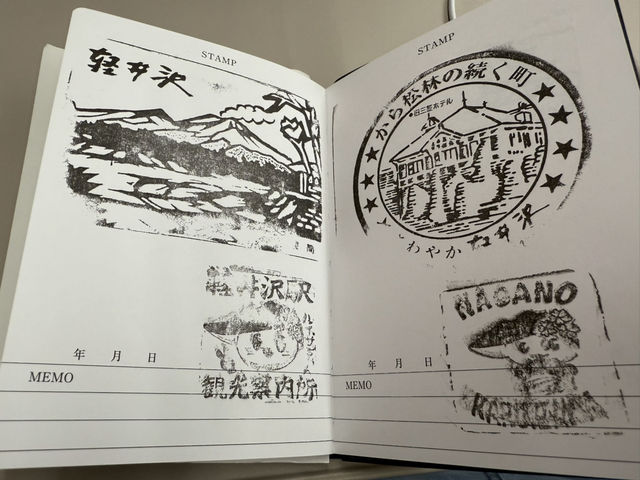 STAMP
軽井沢
軽井沢駅
観光案内所
年 月 日
MEMO
STAMP
から松林の続く町
•旧三笠ホテル
さわやか軽井沢
NAGANO
年 月 日
MEMO